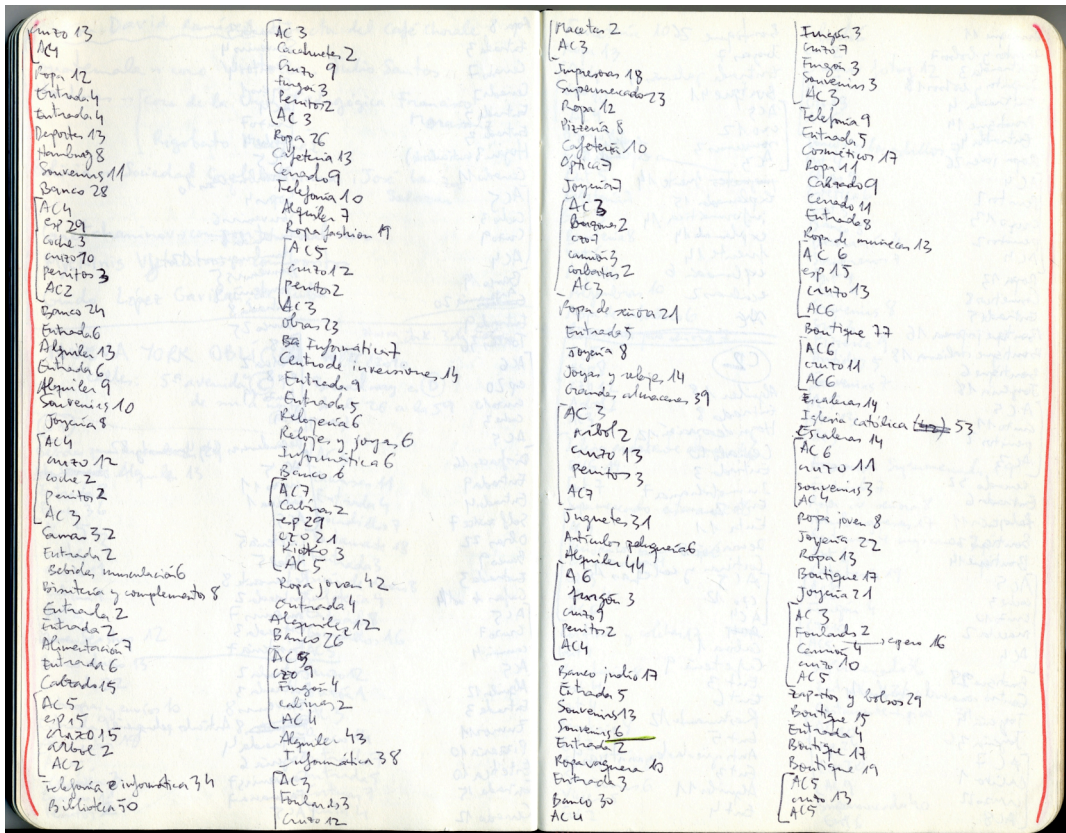 Cruzo 13
AC4
Ropa 12
Entrada 4
Entrada 4
Deportes 13
Hamburg 8
Souvenirs 11
Banco 28
AC4
esp 29
coche 3
cruzo 10
perritos 3
AC2
Banco 24
Entrada 6
Alquiler 13
Entrada 6
Alquiler 9
Souvenirs 10
Joyería 8
AC4
cruzo 12
coche 2
perritos 2
AC 3
Camas 32
Entrada 2
Bebidas musculación 6
Bisutería y complementos 8
Entrada 2
Entrada 2
Alimentación 7
Entrada 6
Calzado 15
AC 5
esp 15
cruzo 15
árbol 2
AC 2
Telefonía e informática 34
Biblioteca 50
AC 3
Cacahuetes 2
Cruzo 9
Furgo 3
Perritos 2
AC 3
Ropa 26
Cafetería 13
Cerrado 9
Telefonía 10
Alquiler 7
Ropa fashion 19
AC5
cruzo 12
perritos 2
AC 3
Obras 23
Informática 7
Centro de inversiones 14
Entrada 9
Entrada 5
Relojería 6
Relojes y joyas 6
Informática 6
Banco 6
AC7
Cabinas 2
esp 29
czo 21
Kiosko 3
AC5
Ropa joven 42
Entrada 4
Alquiler 12
Banco 26
AC5
czo 9
Furgón 4
cabinas 2
AC4
Alquiler 43
Informática 38
AC3
Foulards 3
Cruzo 12
Macetas 2
AC3
Impresoras 18
Supermercado 23
Ropa 12
Pizzería 8
Cafetería 10
Óptica 7
Joyería 7
AC 3
Buzones 2
czo 7
camión 3
corbatas 2
AC3
Ropa de señora 21
Entrada 5
Joyería 8
Joyas y relojes 14
Grandes almacenes 39
AC 3
árbol 2
cruzo 13
perritos 3
AC7
Juguetes 31
Artículos peluquería 6
Alquiler 44
A 6
furgón 3
cruzo 9
perritos 2
AC4
Banco judío 17
Entrada 5
Souvenirs 13
Souvenirs 6
Entrada 2
Ropa vaquera 13
Entrada 3
Banco 30
AC4
Furgón 3
cruzo 7
Furgón 3
Souvenirs 3
AC 3
Telefonía 9
Entrada 5
Cosméticos 17
Ropa 11
Calzado 9
Cerrado 11
Entrada 3
Ropa de muñecas 13
AC 6
esp 15
cruzo 13
AC6
Boutique 77
AC6
cruzo 11
AC6
Escaleras 14
Iglesia católica 53
Escaleras 14
AC6
cruzo 11
souvenirs 3
AC4
Ropa joven 8
Joyería 22
Ropa 13
Boutique 17
Joyería 21
AC 3
Foulards 2
Camión 4 espero 16
cruzo 10
AC5
Zapatos y bolsos 29
Boutique 15
Entrada 4
Boutique 17
Boutique 19
AC5
cruzo 13
AC5